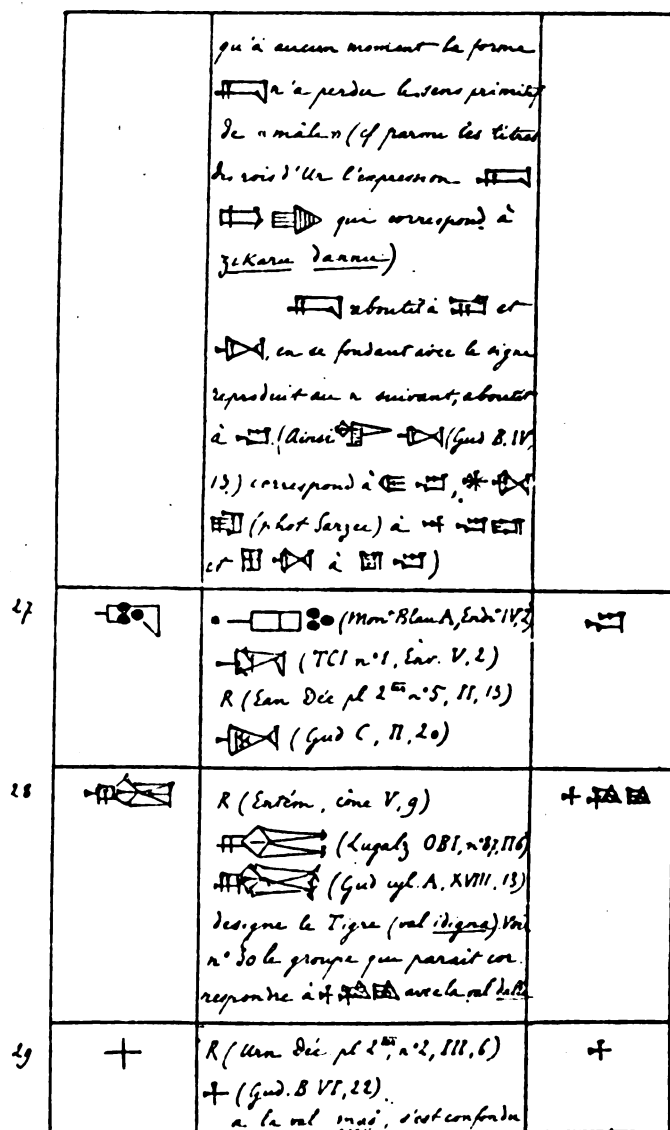 qu'à aucun moment la forme
n'a perdu le sens primitif
de «mâle» (cf parmi les titres
des rois d'Ur l'expression
qui correspond à
zikaru dannu)
aboutit à et
, en se fondant avec le signe
reproduit au n suivant, aboutit
à (Ainsi (Gud B. IV,
13) correspond à ,
(phot Sarzec) à
et à )
27 (Monᵗ Blau A, Endrᵗ IV, 2)
(TCI n° 1, Env. V, 2)
R (Ean Déc pl 2 bis n° 5, II, 13)
(Gud C, II, 20)
28 R (Entém, cône V, 9)
(Lugalz OBI, n° 87, II 6)
(Gud cyl. A, XVIII, 13)
designe le Tigre (val idigna) Voir
n° 30 le groupe qui parait cor
respondre à avec la val
29 R (Urn Déc pl 2, n° 2, III, 6)
(Gud. B VI, 22)
a la val maš, s'est confondu